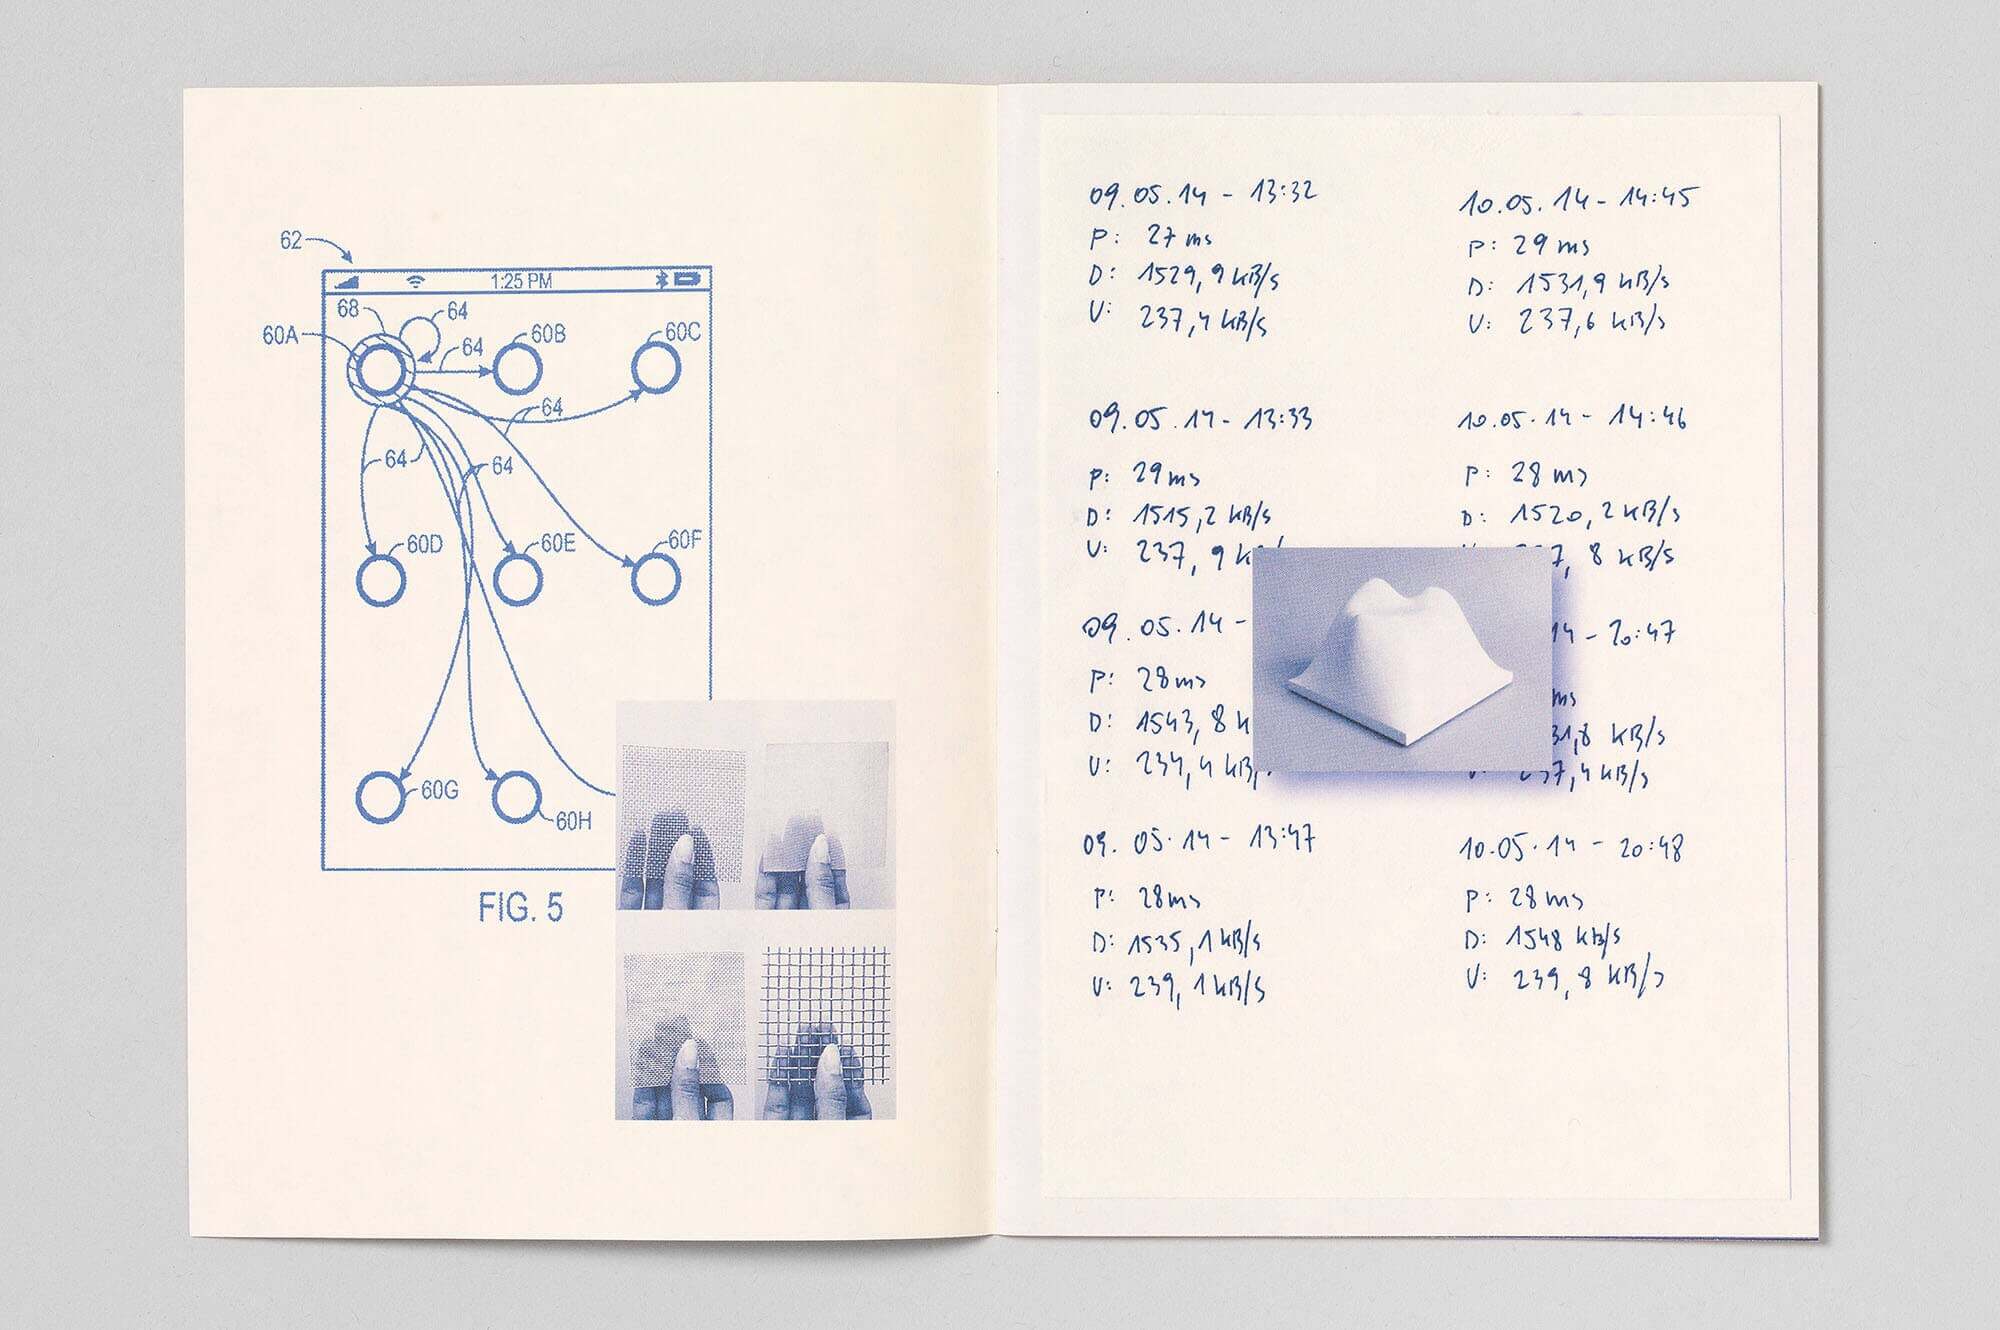 62
1:25 PM
68
64
60A
60B
60C
64
64
64
64
60D
60E
60F
60G
60H
FIG. 5
09.05.14 - 13:32
P: 27 ms
D: 1529,9 KB/s
U: 237,4 KB/s
09.05.14 - 13:33
P: 29 ms
D: 1515,2 KB/s
U: 237,9 K
09.05.14 -
P: 28 ms
D: 1543,8 K
U: 234,4 KB/
09.05.14 - 13:47
P: 28 ms
D: 1535,1 KB/s
U: 239,1 KB/s
10.05.14 - 14:45
P: 29 ms
D: 1531,9 KB/s
U: 237,6 KB/s
10.05.14 - 14:46
P: 28 ms
D: 1520,2 KB/s
7,8 KB/s
14 - 20:47
ms
31,8 KB/s
237,4 KB/s
10.05.14 - 20:48
P: 28 ms
D: 1548 KB/s
U: 239,8 KB/s